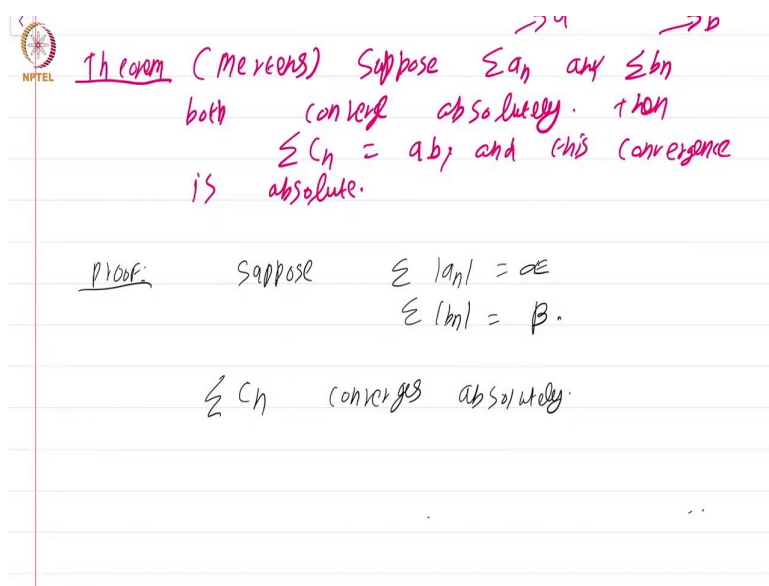 → a → b
Theorem (Mertens) Suppose Σan and Σbn
NPTEL
both converge absolutely. then
Σ Cn = ab, and this convergence
is absolute.
Proof: Suppose Σ |an| = α
Σ |bn| = β.
Σ Cn converges absolutely.